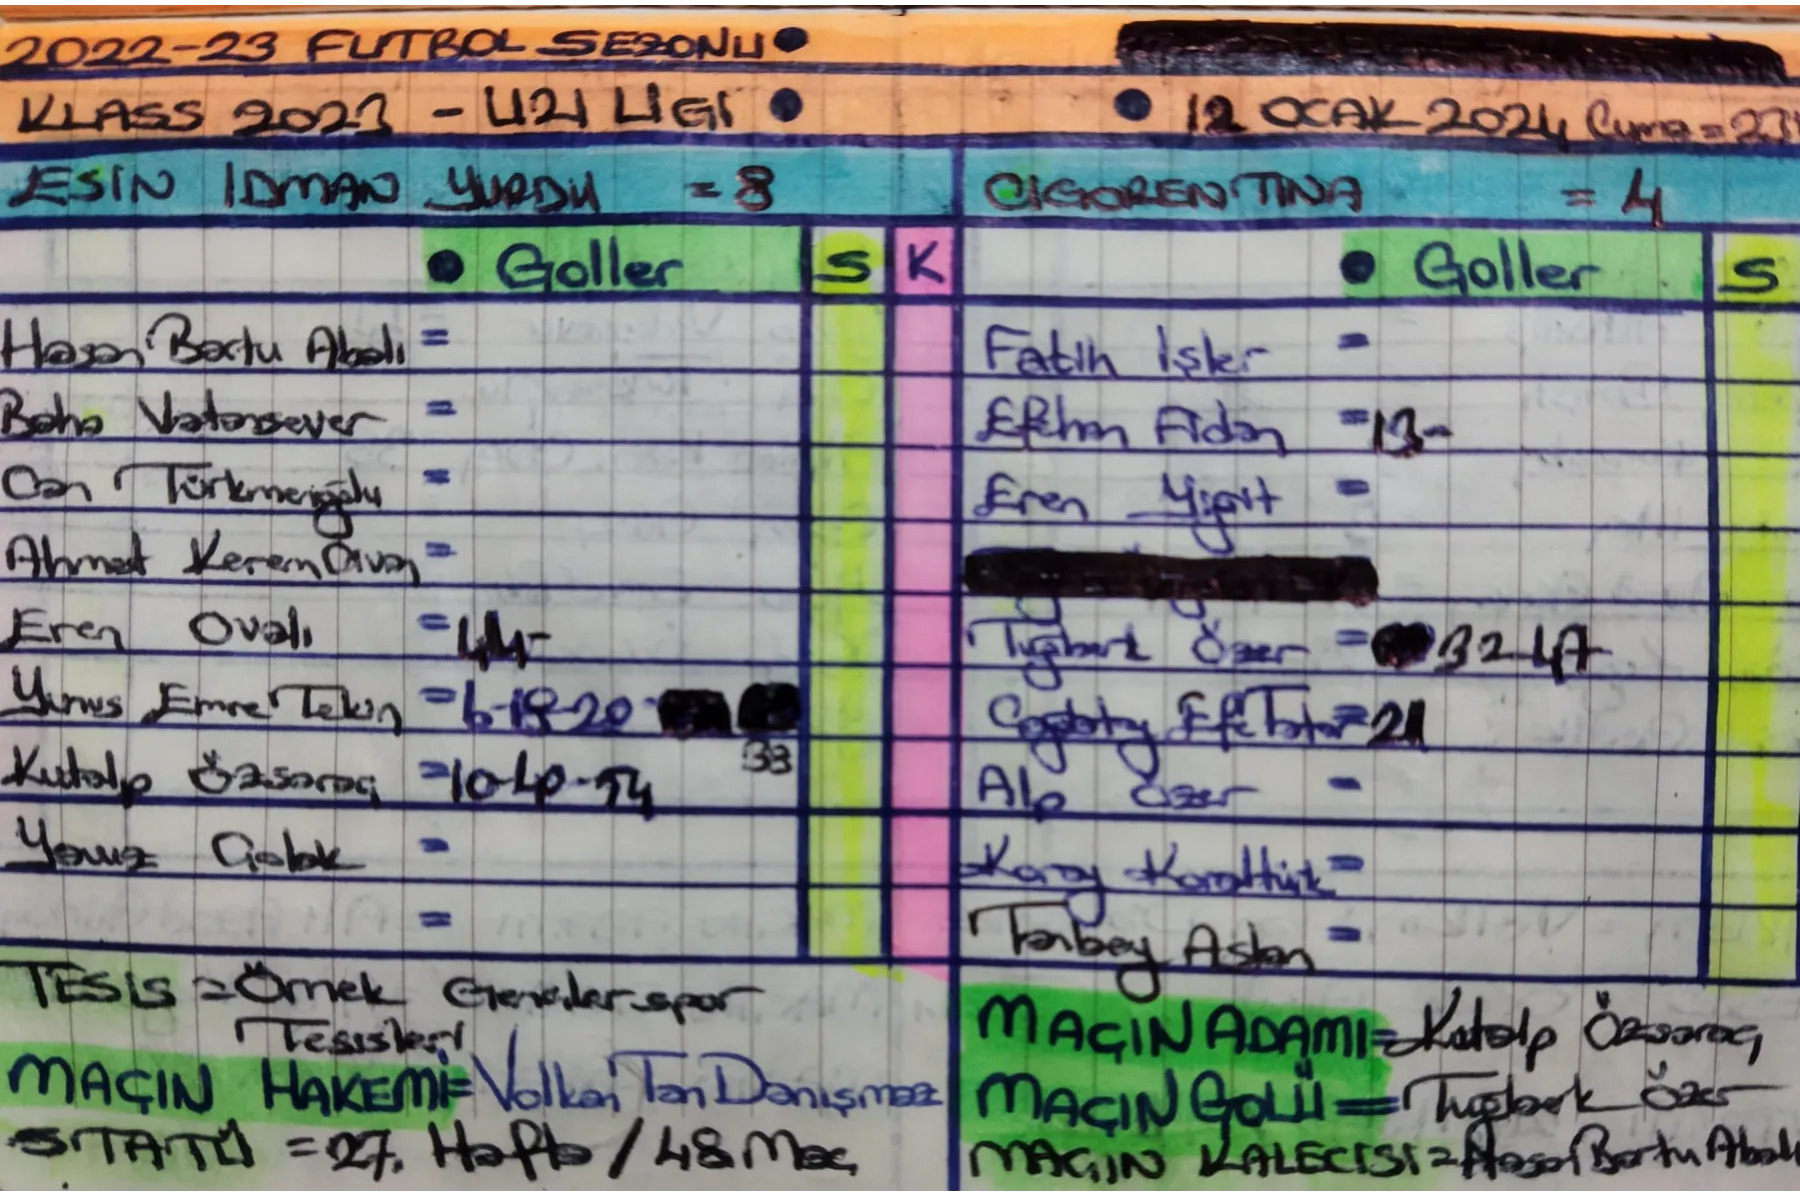 2022-23 FUTBOL SEZONU
KLASS 2023 - U21 LIGI
12 OCAK 2024 Cuma =
ESIN IDMAN YURDU = 8
CIGORENTINA = 4
Goller S K
Goller S
Hasan Bartu Abalı =
Fatih İşler =
Baha Vatansever =
Efehan Aldan =13-
Can Türkmenoğlu =
Eren Yiğit =
Ahmet Kerem Divan =
Eren Ovalı =44-
Tuğberk Özer = 32-47-
Yunus Emre Tekin =6-19-20-
33
Çağatay Efe Tatar=21
Kutalp Özsaraç =10-40-54
Alp Özer =
Yavuz Çolak =
Koray Karattürk =
=
Tanbey Aslan =
TESİS =Örnek Gençlerspor
Tesisleri
MAÇIN ADAMI=Kutalp Özsaraç
MAÇIN HAKEMİ=Volkan Tan Danışmaz
MAÇIN GOLÜ=Tuğberk Özer
STATÜ =27. Hafta / 48.Maç
MAÇIN KALECİSİ=Hasan Bartu Abalı